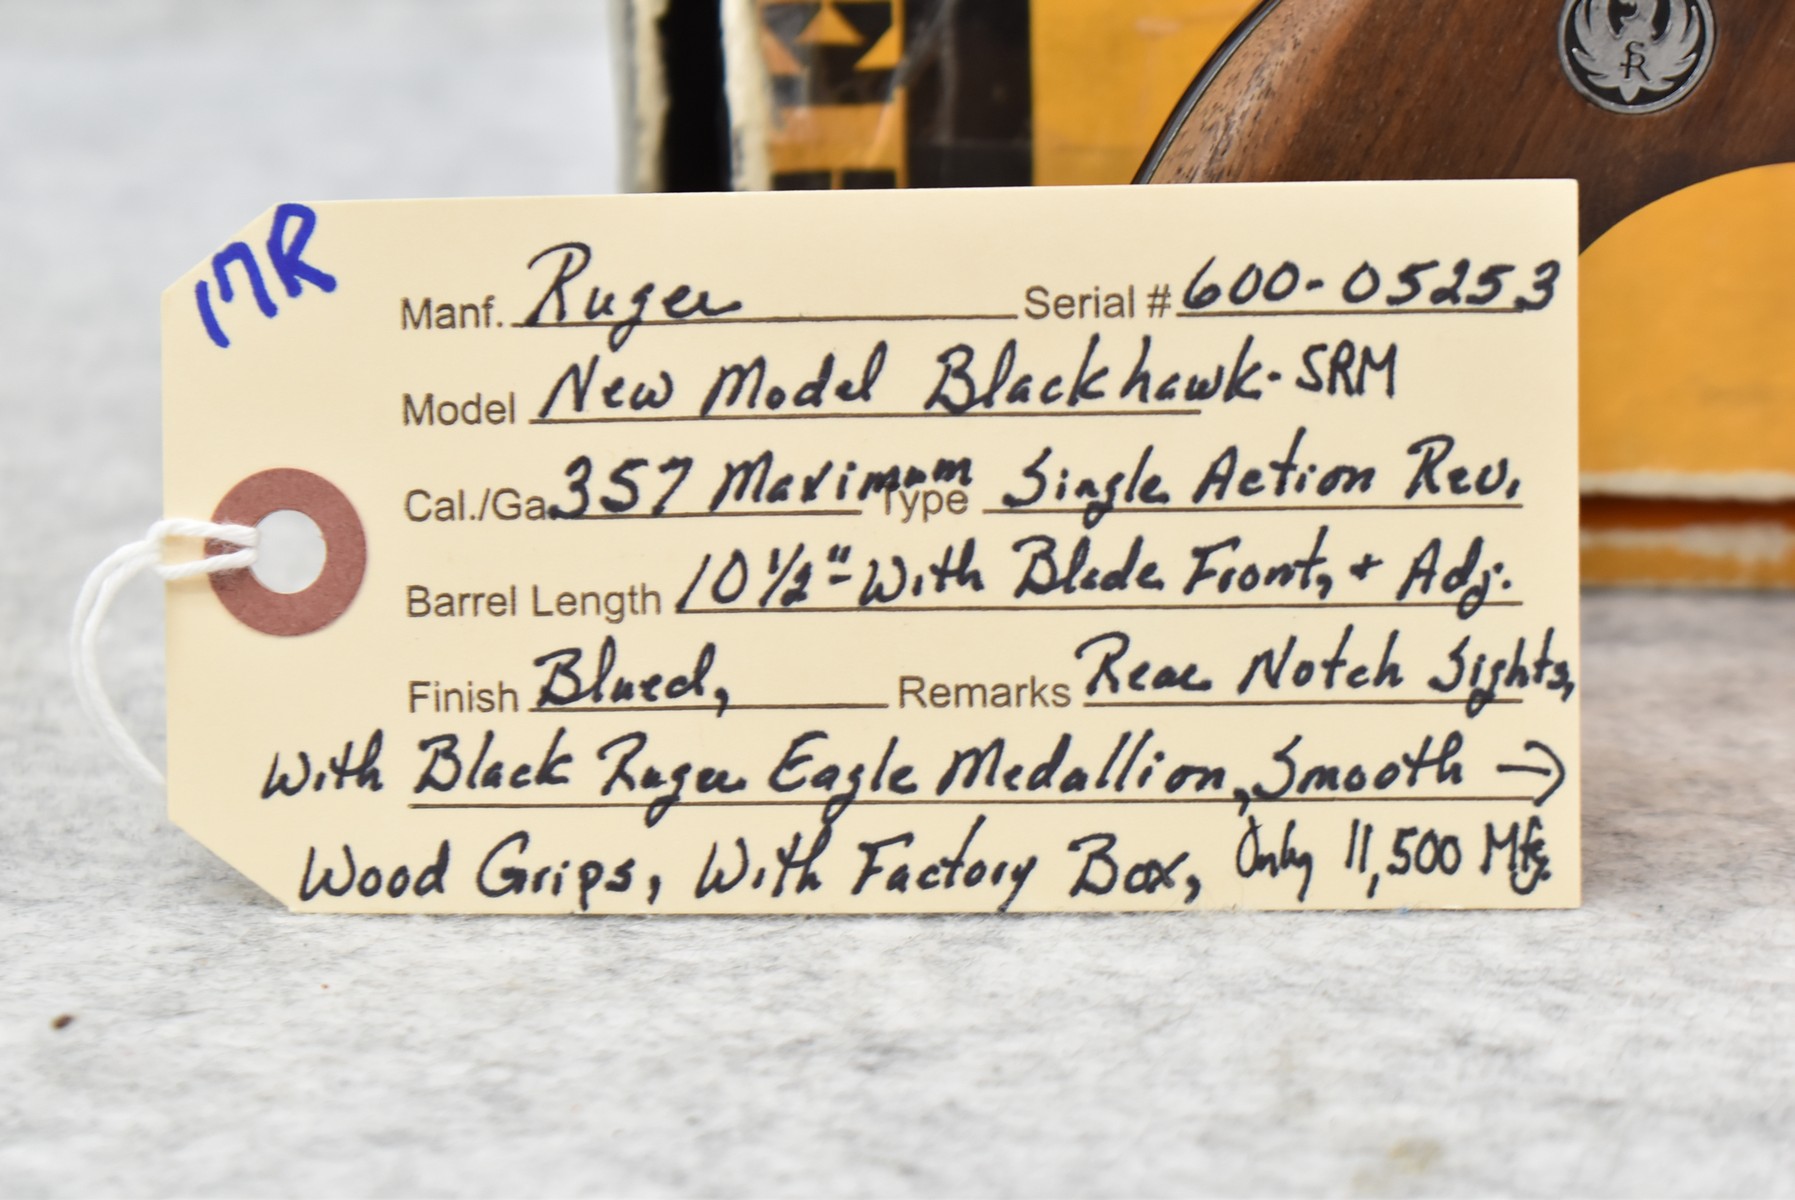 17R
Manf. Ruger Serial # 600-05253
Model New Model Blackhawk-SRM
Cal./Ga. 357 Maximum Type Single Action Rev.
Barrel Length 10 1/2"-With Blade Front, + Adj.
Finish Blued, Remarks Rear Notch Sights,
With Black Ruger Eagle Medallion, Smooth →
Wood Grips, With Factory Box, Only 11,500 Mfg.